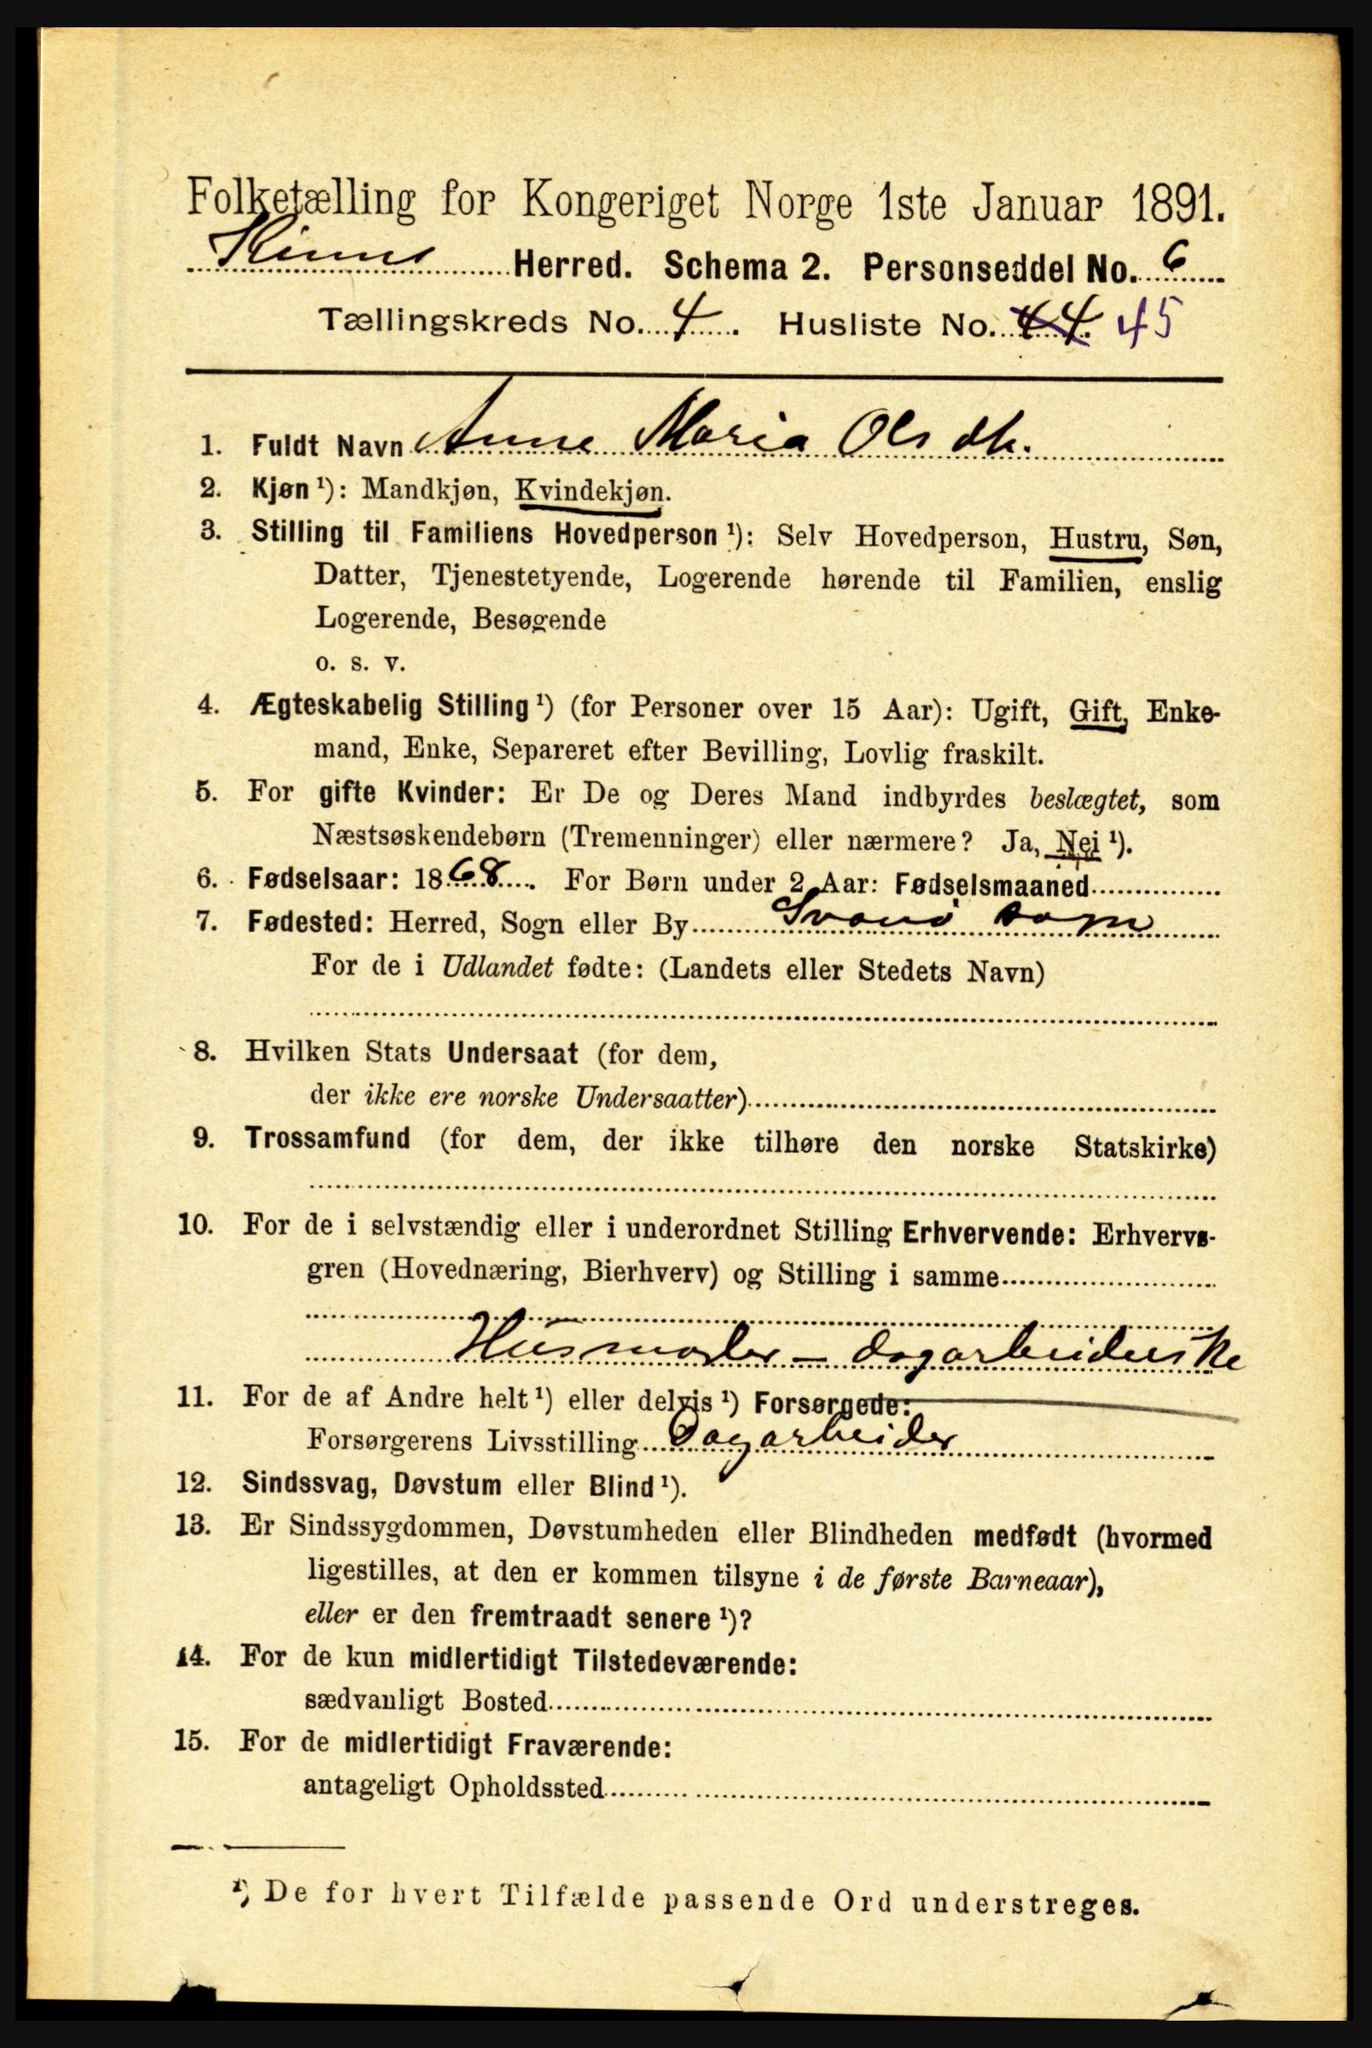 Folketælling for Kongeriget Norge 1ste Januar 1891.
Kinns Herred. Schema 2. Personseddel No. 6
Tællingskreds No. 4. Husliste No. 44. 45
1. Fuldt Navn Anne Maria Olsdtr.
2. Kjøn ¹): Mandkjøn, Kvindekjøn.
3. Stilling til Familiens Hovedperson ¹): Selv Hovedperson, Hustru, Søn,
Datter, Tjenestetyende, Logerende hørende til Familien, enslig
Logerende, Besøgende
o. s. v.
4. Ægteskabelig Stilling ¹) (for Personer over 15 Aar): Ugift, Gift, Enke-
mand, Enke, Separeret efter Bevilling, Lovlig fraskilt.
5. For gifte Kvinder: Er De og Deres Mand indbyrdes beslægtet, som
Næstsøskendebørn (Tremenninger) eller nærmere? Ja, Nei ¹).
6. Fødselsaar: 1868. For Børn under 2 Aar: Fødselsmaaned
7. Fødested: Herred, Sogn eller By Svanø sogn
For de i Udlandet fødte: (Landets eller Stedets Navn)
8. Hvilken Stats Undersaat (for dem,
der ikke ere norske Undersaatter)
9. Trossamfund (for dem, der ikke tilhøre den norske Statskirke)
10. For de i selvstændig eller i underordnet Stilling Erhvervende: Erhvervs-
gren (Hovednæring, Bierhverv) og Stilling i samme
Husmoder – dagarbeiderske
11. For de af Andre helt ¹) eller delvis ¹) Forsørgede:
Forsørgerens Livsstilling Dagarbeider
12. Sindssvag, Døvstum eller Blind ¹).
13. Er Sindssygdommen, Døvstumheden eller Blindheden medfødt (hvormed
ligestilles, at den er kommen tilsyne i de første Barneaar),
eller er den fremtraadt senere ¹)?
14. For de kun midlertidigt Tilstedeværende:
sædvanligt Bosted
15. For de midlertidigt Fraværende:
antageligt Opholdssted
¹) De for hvert Tilfælde passende Ord understreges.